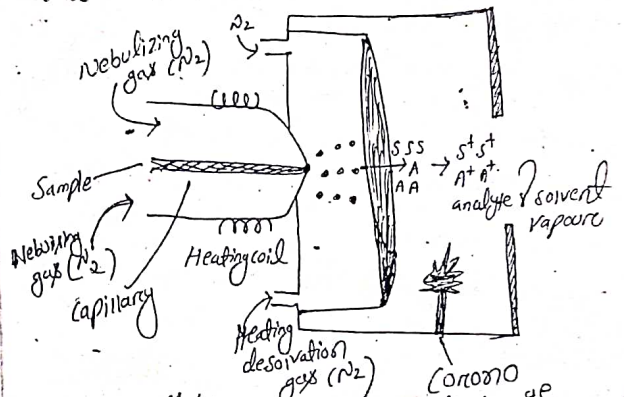 N2
Nebulizing
gas (N2)
Sample
Nebulizing
gas (N2)
Capillary
Heating coil
S S S
A
A A
S+ S+
A+ A+
analyte & solvent
vapoure
Heating
desolvation
gas (N2)
Corono